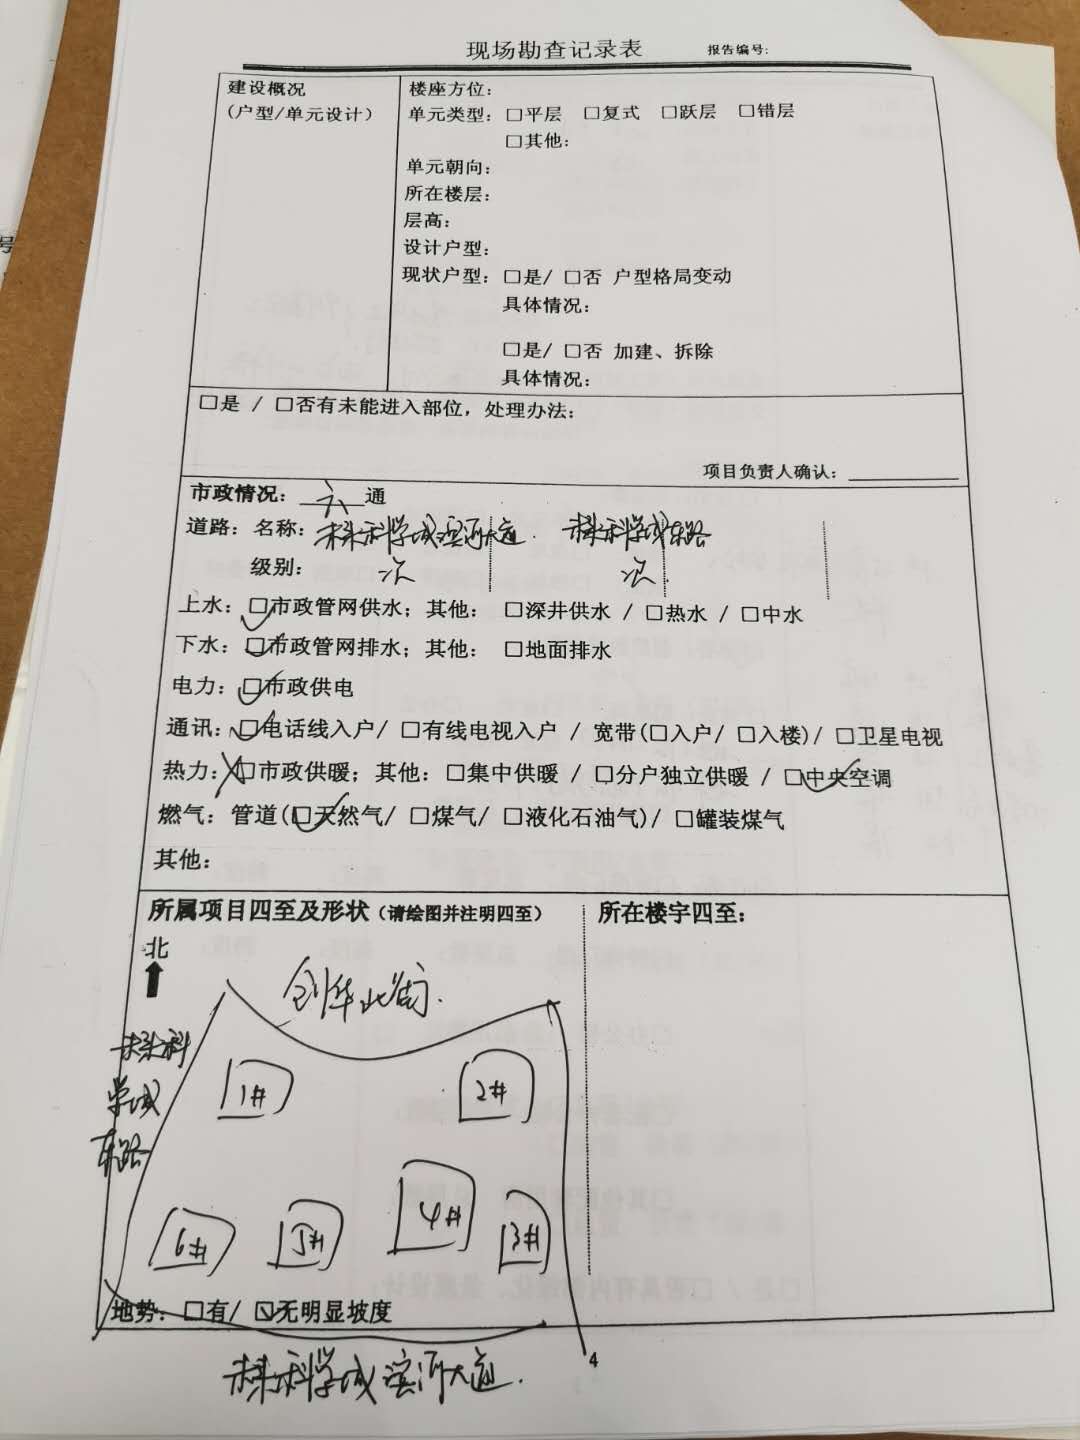 现场勘查记录表 报告编号:
建设概况
(户型/单元设计)
楼座方位:
单元类型: □平层 □复式 □跃层 □错层
□其他:
单元朝向:
所在楼层:
层高:
设计户型:
现状户型: □是/ □否 户型格局变动
具体情况:
□是/ □否 加建、拆除
具体情况:
□是 / □否有未能进入部位, 处理办法:
项目负责人确认:
市政情况: 六 通
道路: 名称: 未来科学城滨河大道. 未来科学城东路
级别: 次 次
上水: ☑市政管网供水; 其他: □深井供水 / □热水 / □中水
下水: ☑市政管网排水; 其他: □地面排水
电力: ☑市政供电
通讯: ☑电话线入户/ □有线电视入户 / 宽带(□入户/ □入楼)/ □卫星电视
热力: □市政供暖; 其他: □集中供暖 / □分户独立供暖 / ☑中央空调
燃气: 管道(☑天然气/ □煤气/ □液化石油气)/ □罐装煤气
其他:
所属项目四至及形状(请绘图并注明四至)
所在楼宇四至:
北
创华北街.
未来科
学城
东路
1# 2#
6# 5# 4# 3#
地势: □有/ ☑无明显坡度
4
未来科学城滨河大道.
号